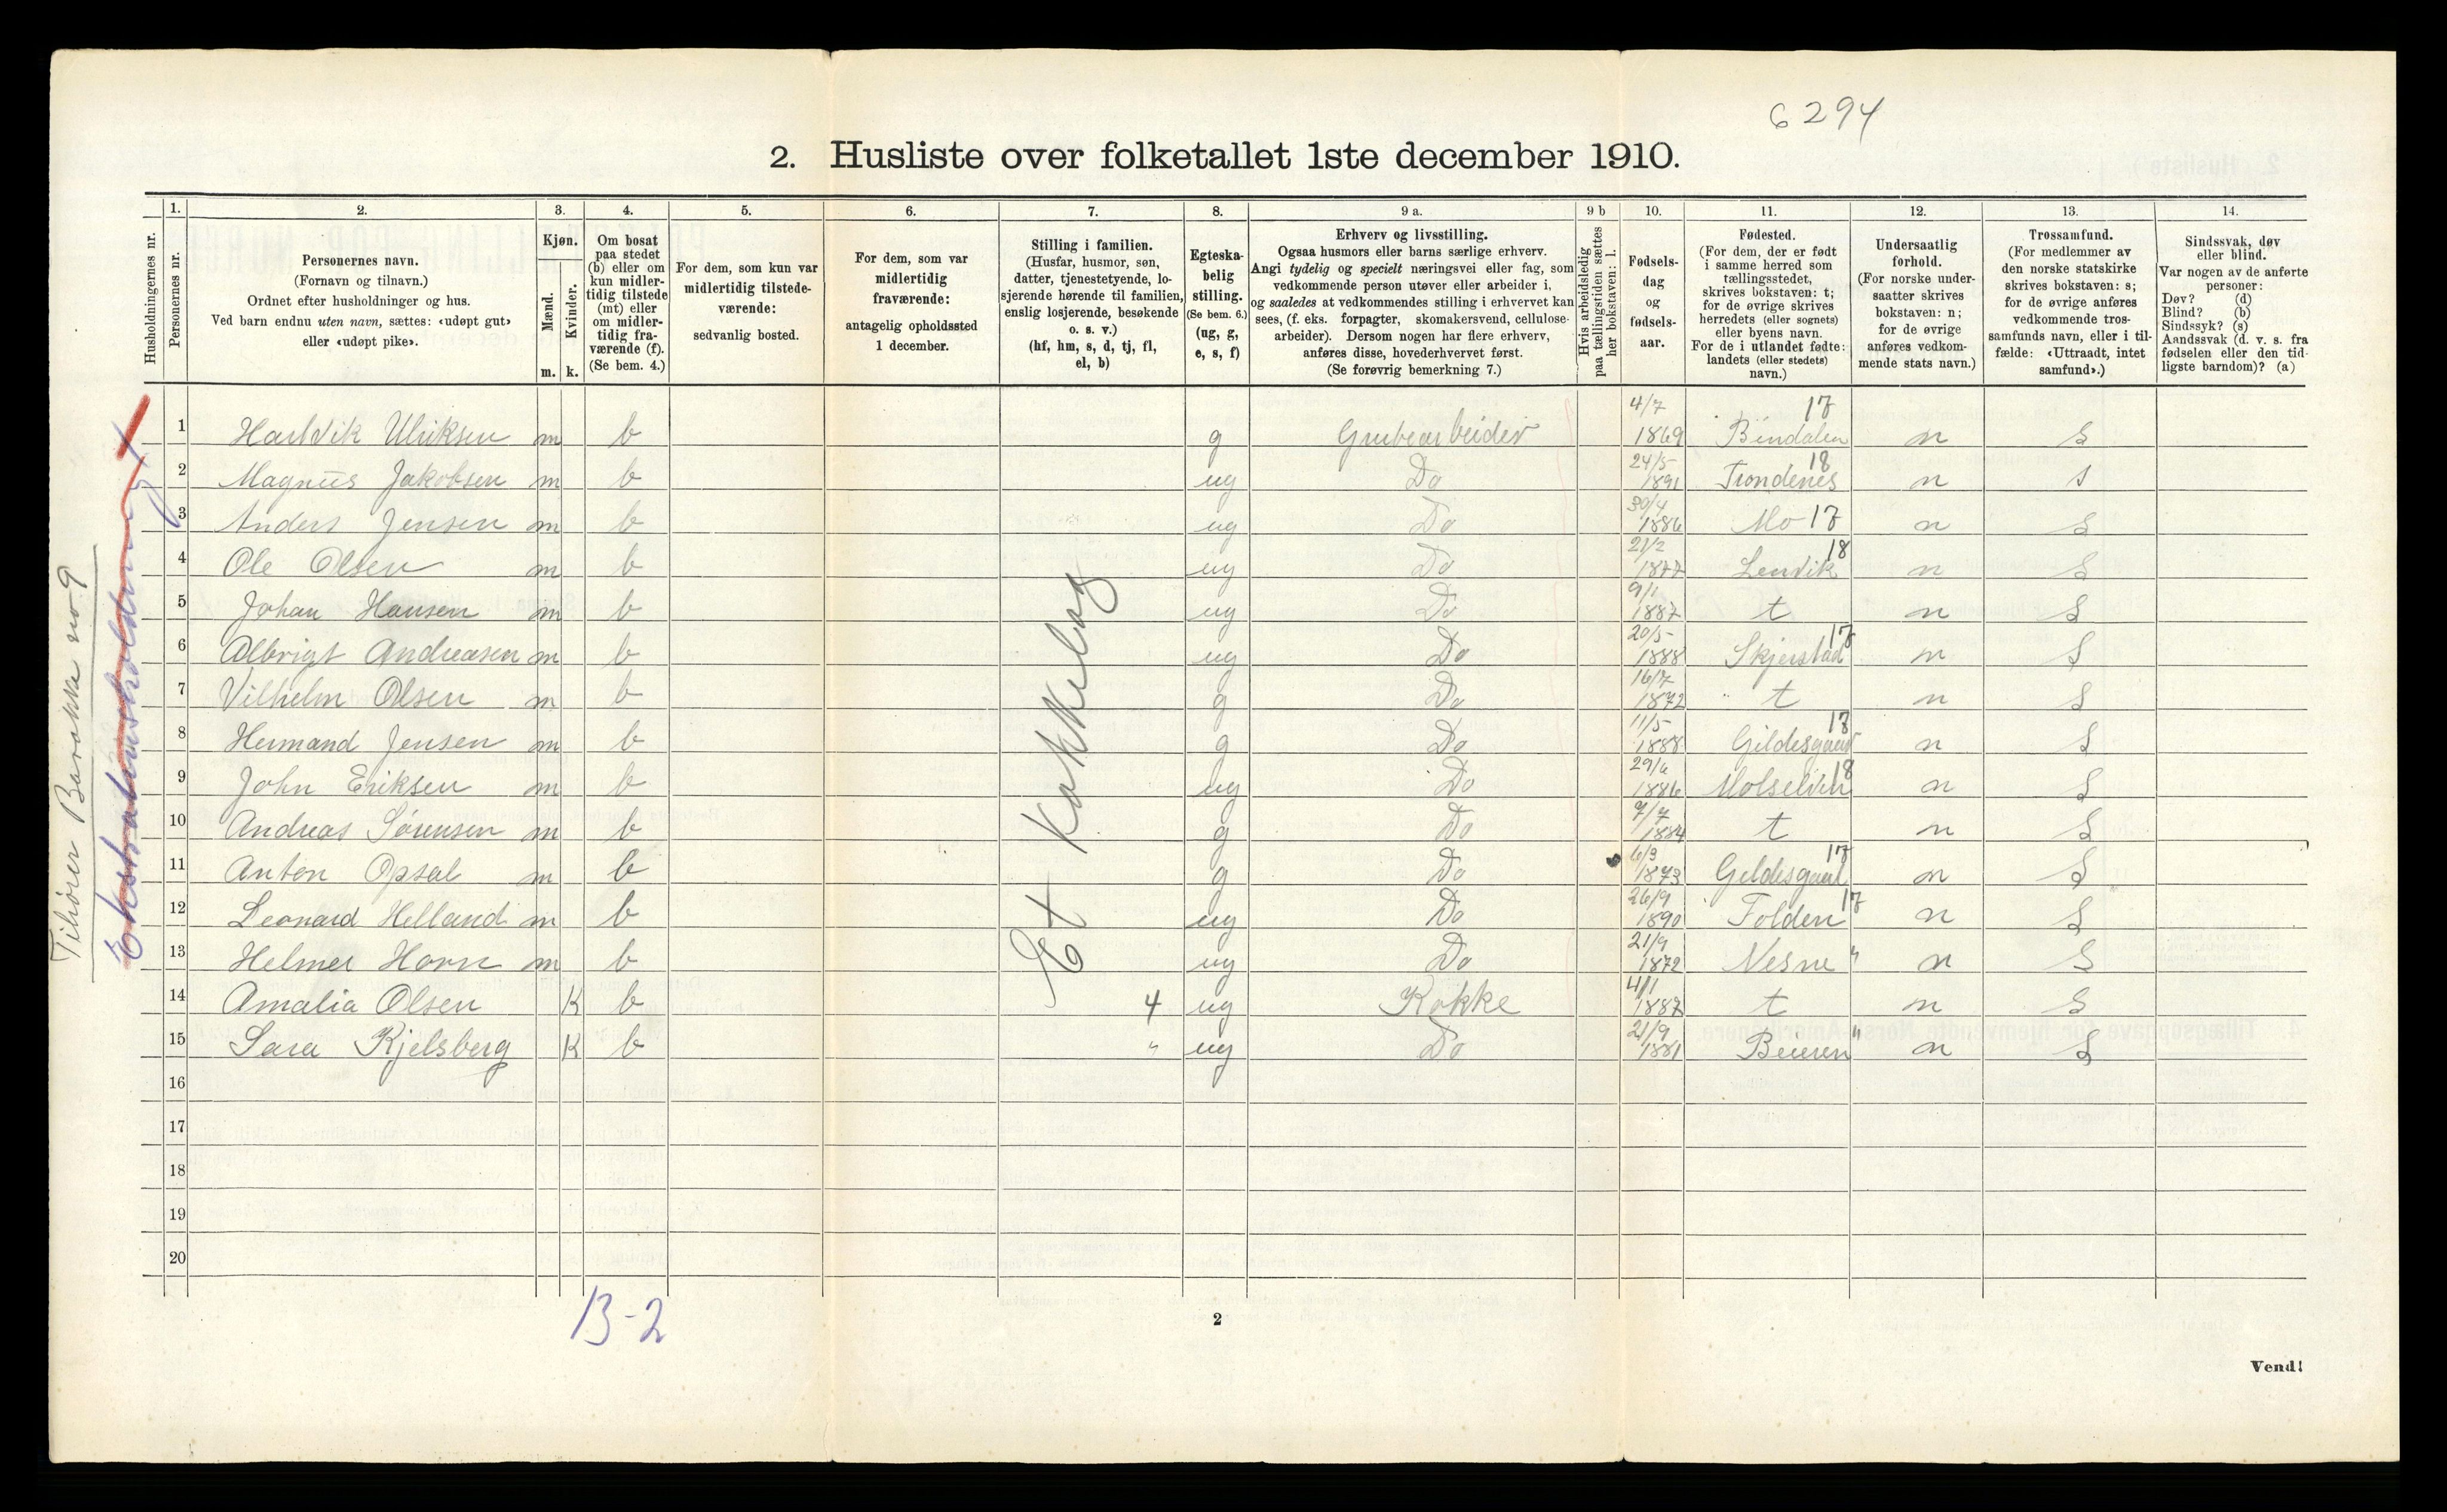 6294
2. Husliste over folketallet 1ste december 1910.
Husholdningernes nr.
1. Personernes nr.
2. Personernes navn.
(Fornavn og tilnavn.)
Ordnet efter husholdninger og hus.
Ved barn endnu uten navn, sættes: «udøpt gut»
eller «udøpt pike».
3. Kjøn.
Mænd. m.
Kvinder. k.
4. Om bosat
paa stedet
(b) eller om
kun midler-
tidig tilstede
(mt) eller
om midler-
tidig fra-
værende (f).
(Se bem. 4.)
5. For dem, som kun var
midlertidig tilstede-
værende:
sedvanlig bosted.
6. For dem, som var
midlertidig
fraværende:
antagelig opholdssted
1 december.
7. Stilling i familien.
(Husfar, husmor, søn,
datter, tjenestetyende, lo-
sjerende hørende til familien,
enslig losjerende, besøkende
o. s. v.)
(hf, hm, s, d, tj, fl,
el, b)
8. Egteska-
belig
stilling.
(Se bem. 6.)
(ug, g,
e, s, f)
9 a. Erhverv og livsstilling.
Ogsaa husmors eller barns særlige erhverv.
Angi tydelig og specielt næringsvei eller fag, som
vedkommende person utøver eller arbeider i,
og saaledes at vedkommendes stilling i erhvervet kan
sees, (f. eks. forpagter, skomakersvend, cellulose-
arbeider). Dersom nogen har flere erhverv,
anføres disse, hovederhvervet først.
(Se forøvrig bemerkning 7.)
9 b Hvis arbeidsledig
paa tællingstiden sættes
her bokstaven: l.
10. Fødsels-
dag
og
fødsels-
aar.
11. Fødested.
(For dem, der er født
i samme herred som
tællingsstedet,
skrives bokstaven: t;
for de øvrige skrives
herredets (eller sognets)
eller byens navn.
For de i utlandet fødte:
landets (eller stedets)
navn.)
12. Undersaatlig
forhold.
(For norske under-
saatter skrives
bokstaven: n;
for de øvrige
anføres vedkom-
mende stats navn.)
13. Trossamfund.
(For medlemmer av
den norske statskirke
skrives bokstaven: s;
for de øvrige anføres
vedkommende tros-
samfunds navn, eller i til-
fælde: «Uttraadt, intet
samfund».)
14. Sindssvak, døv
eller blind.
Var nogen av de anførte
personer:
Døv? (d)
Blind? (b)
Sindssyk? (s)
Aandssvak (d. v. s. fra
fødselen eller den tid-
ligste barndom)? (a)
Tilhører Barakke no 9
Et Kokkelag
1 Hartvik Ulriksen m b g Grubearbeider 4/7 1869 Bindalen 17 n s
2 Magnus Jakobsen m b ug Do 24/5 1891 Trondenes 18 n s
3 Anders Jensen m b ug Do 30/4 1886 Mo 17 n s
4 Ole Olsen m b ug Do 21/2 1877 Lenvik 18 n s
5 Johan Hansen m b ug Do 9/1 1887 t n s
6 Albrigt Andreasen m b ug Do 20/5 1888 Skjerstad 17 n s
7 Vilhelm Olsen m b g Do 16/7 1872 t n s
8 Hermand Jensen m b g Do 11/5 1888 Gildesgaard 17 n s
9 John Eriksen m b ug Do 29/6 1886 18 n s
10 Andreas Sørensen m b g Do 7/7 1884 t n s
11 Anton Opsal m b g Do 6/3 1873 Gildesgaard 17 n s
12 Leonard Helland m b ug Do 26/9 1890 Folden 17 n s
13 Helmer Horn m b ug Do 21/9 1872 Nesne " n s
14 Amalia Olsen K b 4 ug Kokke 4/1 1887 t n s
15 Sara Kjelsberg K b " ug Do 21/9 1881 Beieren " n s
16
17
18
19
20
13-2
2
Vend!